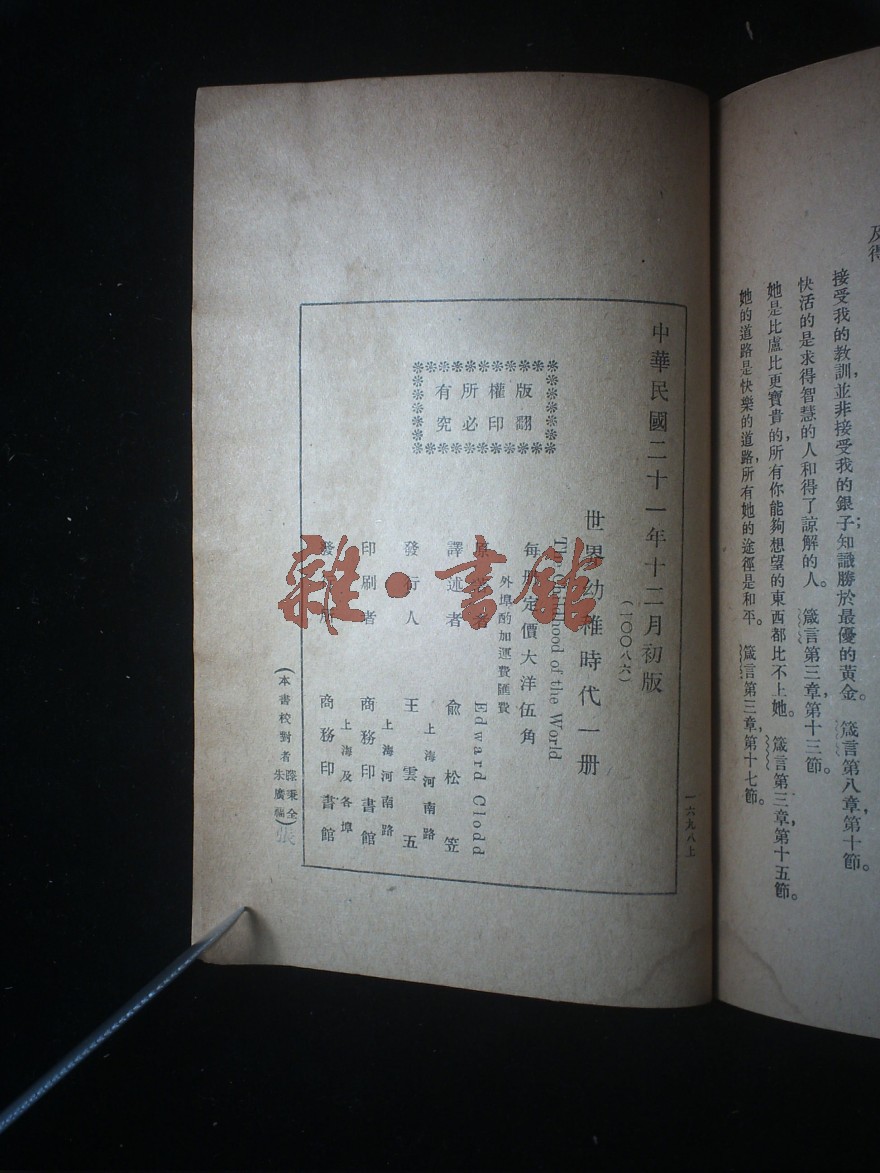 及得
接受我的教訓，並非接受我的銀子；知識勝於最優的黃金。 箴言第八章，第十節。
快活的是求得智慧的人和得了諒解的人。 箴言第三章，第十三節。
她是比盧比更寶貴的，所有你能夠想望的東西都比不上她。 箴言第三章，第十五節。
她的道路是快樂的道路，所有她的途徑是和平。 箴言第三章，第十七節。
一六九八上
中華民國二十一年十二月初版
(一〇〇八六)
世界幼稚時代一册
The Childhood of the World
每册定價大洋伍角
外埠酌加運費匯費
版權所有
翻印必究
原著者 Edward Clodd
譯述者 俞松笠
發行人 王雲五
上海河南路
印刷者 商務印書館
上海河南路
發行所 商務印書館
上海及各埠
(本書校對者 秉全 朱廣福)
張
雜·書館